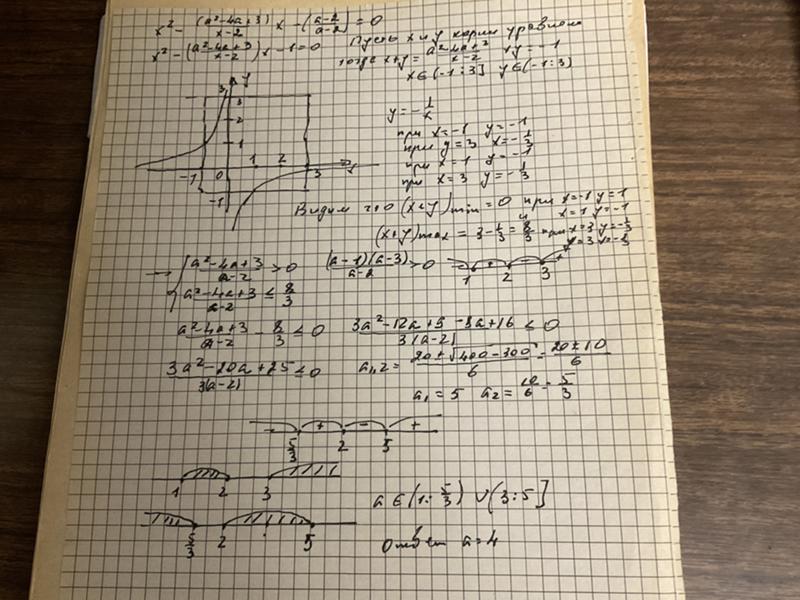 x² - (a²-4a+3)/(x-2) x - (a-2)/(a-2) = 0
x² - (a²-4a+3)/(x-2) x - 1 = 0
Пусть x и y корни уравнения
тогда x+y = (a²-4a+3)/(x-2) xy = -1
x∈(-1:3] y∈(-1:3)
y
3
3
2
1
-1 0 1 2 3
-1
y = -1/x
при x=-1 y=-1
при y=3 x=-1/3
при x=1 y=-1
при x=3 y=-1/3
Видим что (x+y)min = 0 при x=-1 y=1
и x=1 y=-1
(x+y)max = 3-1/3 = 8/3 при x=3 y=-1/3
(a²-4a+3)/(a-2) > 0 (a-1)(a-3)/(a-2) > 0
1 2 3
(a²-4a+3)/(a-2) ≤ 8/3
(a²-4a+3)/(a-2) - 8/3 ≤ 0 (3a²-12a+9-8a+16)/(3(a-2)) ≤ 0
(3a²-20a+25)/(3(a-2)) ≤ 0 a₁,₂ = (20±√(400-300))/6 = (20±10)/6
a₁ = 5 a₂ = 10/6 = 5/3
- + - +
5/3 2 5
1 2 3
a∈(1:5/3) ∪ (3:5]
5/3 2 5
Ответ a=4